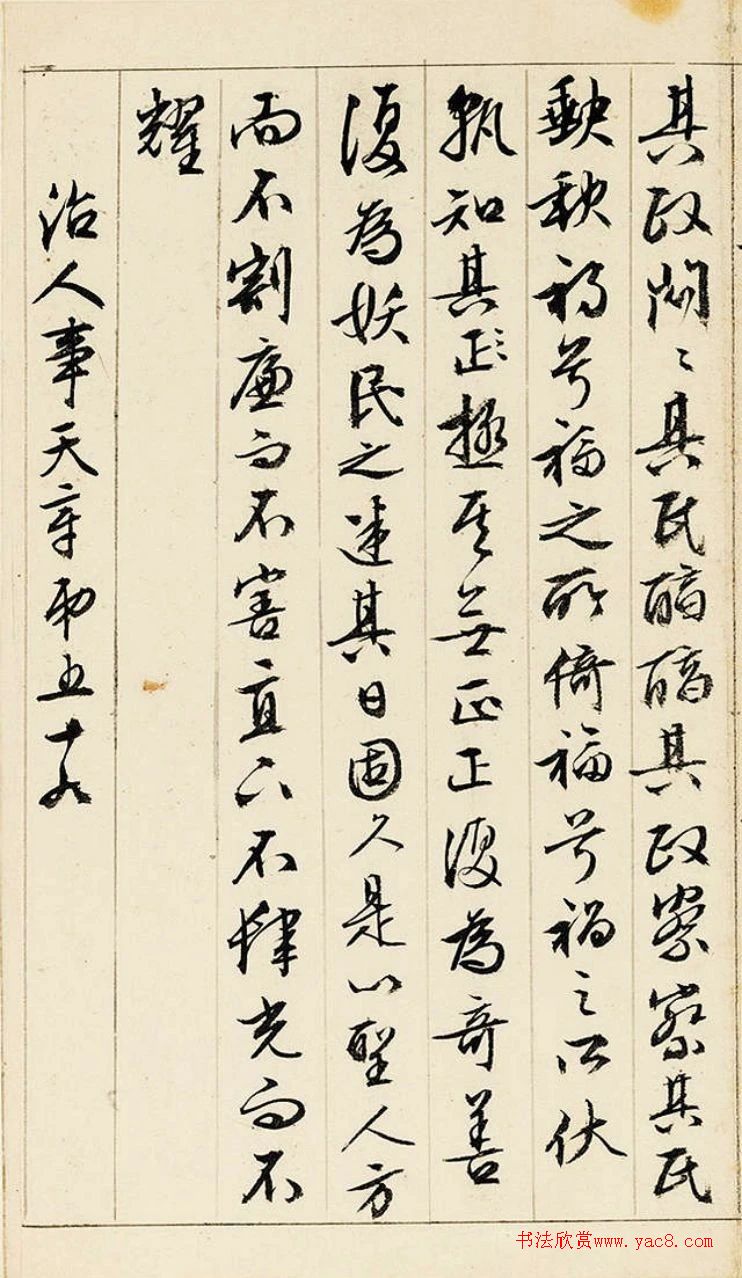 其政悶〻其民醇醇其政察察其民
缺缺禍兮福之所倚福兮禍之所伏
孰知其正極其無正正復為奇善
復為妖民之迷其日固久是以聖人方
而不割廉而不害直而不肆光而不
耀
治人事天章第五十九
书法欣赏www.yac8.com